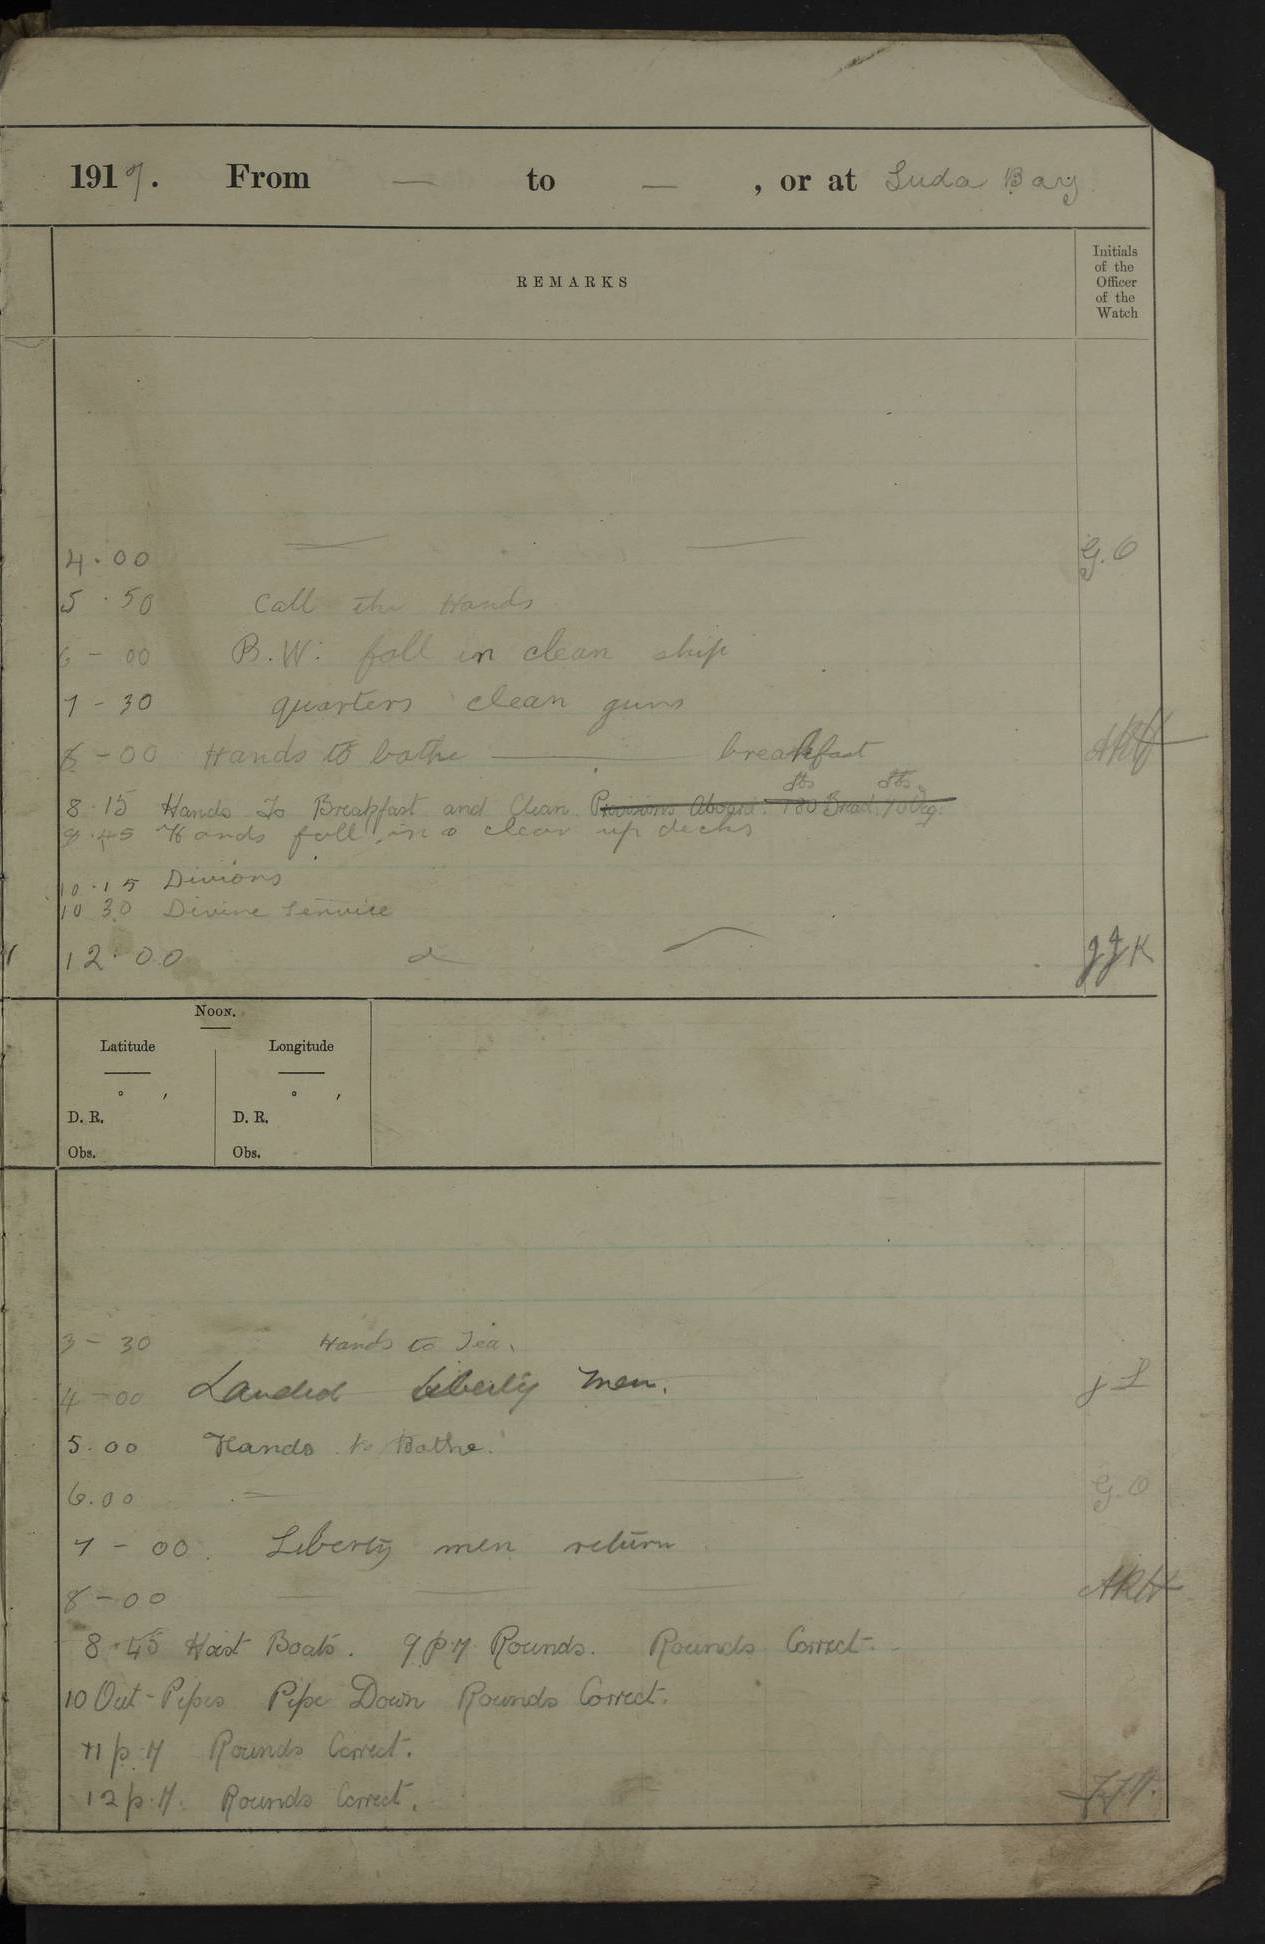 1917. From — to — , or at Suda Bay
REMARKS
Initials of the Officer of the Watch
4.00 G.O
5.50 Call the Hands
6-00 B.W: fall in clean ship
7-30 quarters clean guns
8-00 Hands to bathe — breakfast
lbs lbs
8.15 Hands to Breakfast and Clean. Provisions Aboard. 180 Bread, 70 Veg.
9.45 Hands fall in & clear up decks
10.15 Divions
10 30 Divine Service
12.00 JJK
NOON.
Latitude Longitude
° ′ ° ′
D. R. D. R.
Obs. Obs.
3-30 Hands to Tea.
4-00 Landed Liberty Men.
5.00 Hands to Bathe.
6.00 G.O
7-00. Liberty men return
8-00
8.45 Hoist Boats. 9 p.m Rounds. Rounds Correct.
10 Out-Pipes Pipe Down Rounds Correct.
11 p.m Rounds Correct.
12 p.m. Rounds Correct.